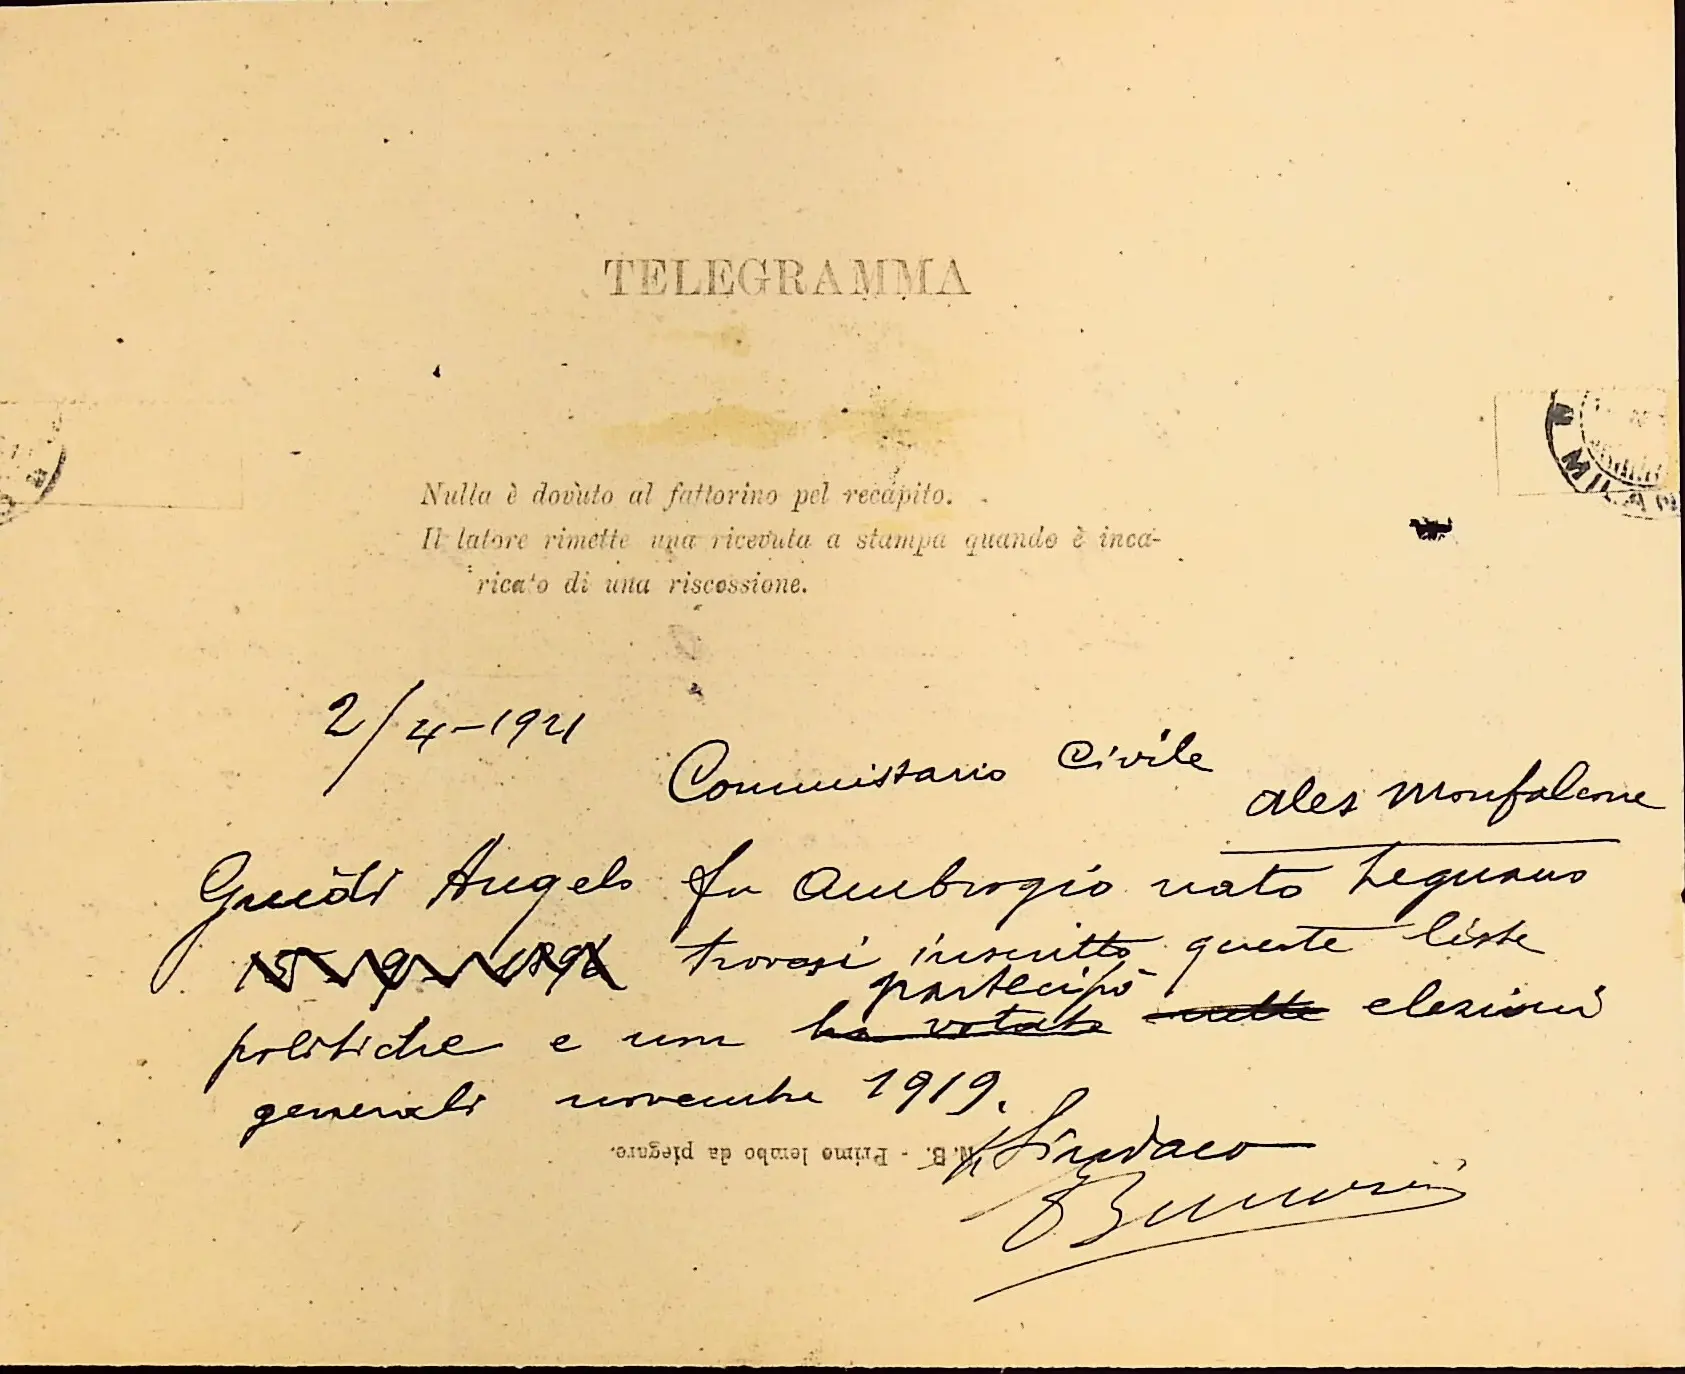 TELEGRAMMA
MILANO
Nulla è dovuto al fattorino pel recapito.
Il latore rimette una ricevuta a stampa quando è inca-
ricato di una riscossione.
2/4-1921
Commissario Civile
Monfalcone
Guidi Angelo fu Ambrogio nato Legnano
15-9-1896 trovasi inscritto queste liste
partecipò
politiche e non ha votato nelle elezioni
generali novembre 1919.
N.B. - Primo lembo da piegare.
Il Sindaco